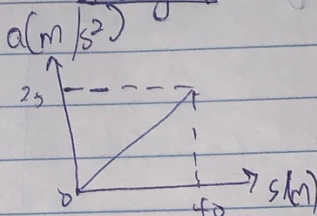 a(m/s²)
25
0
40
S(m)